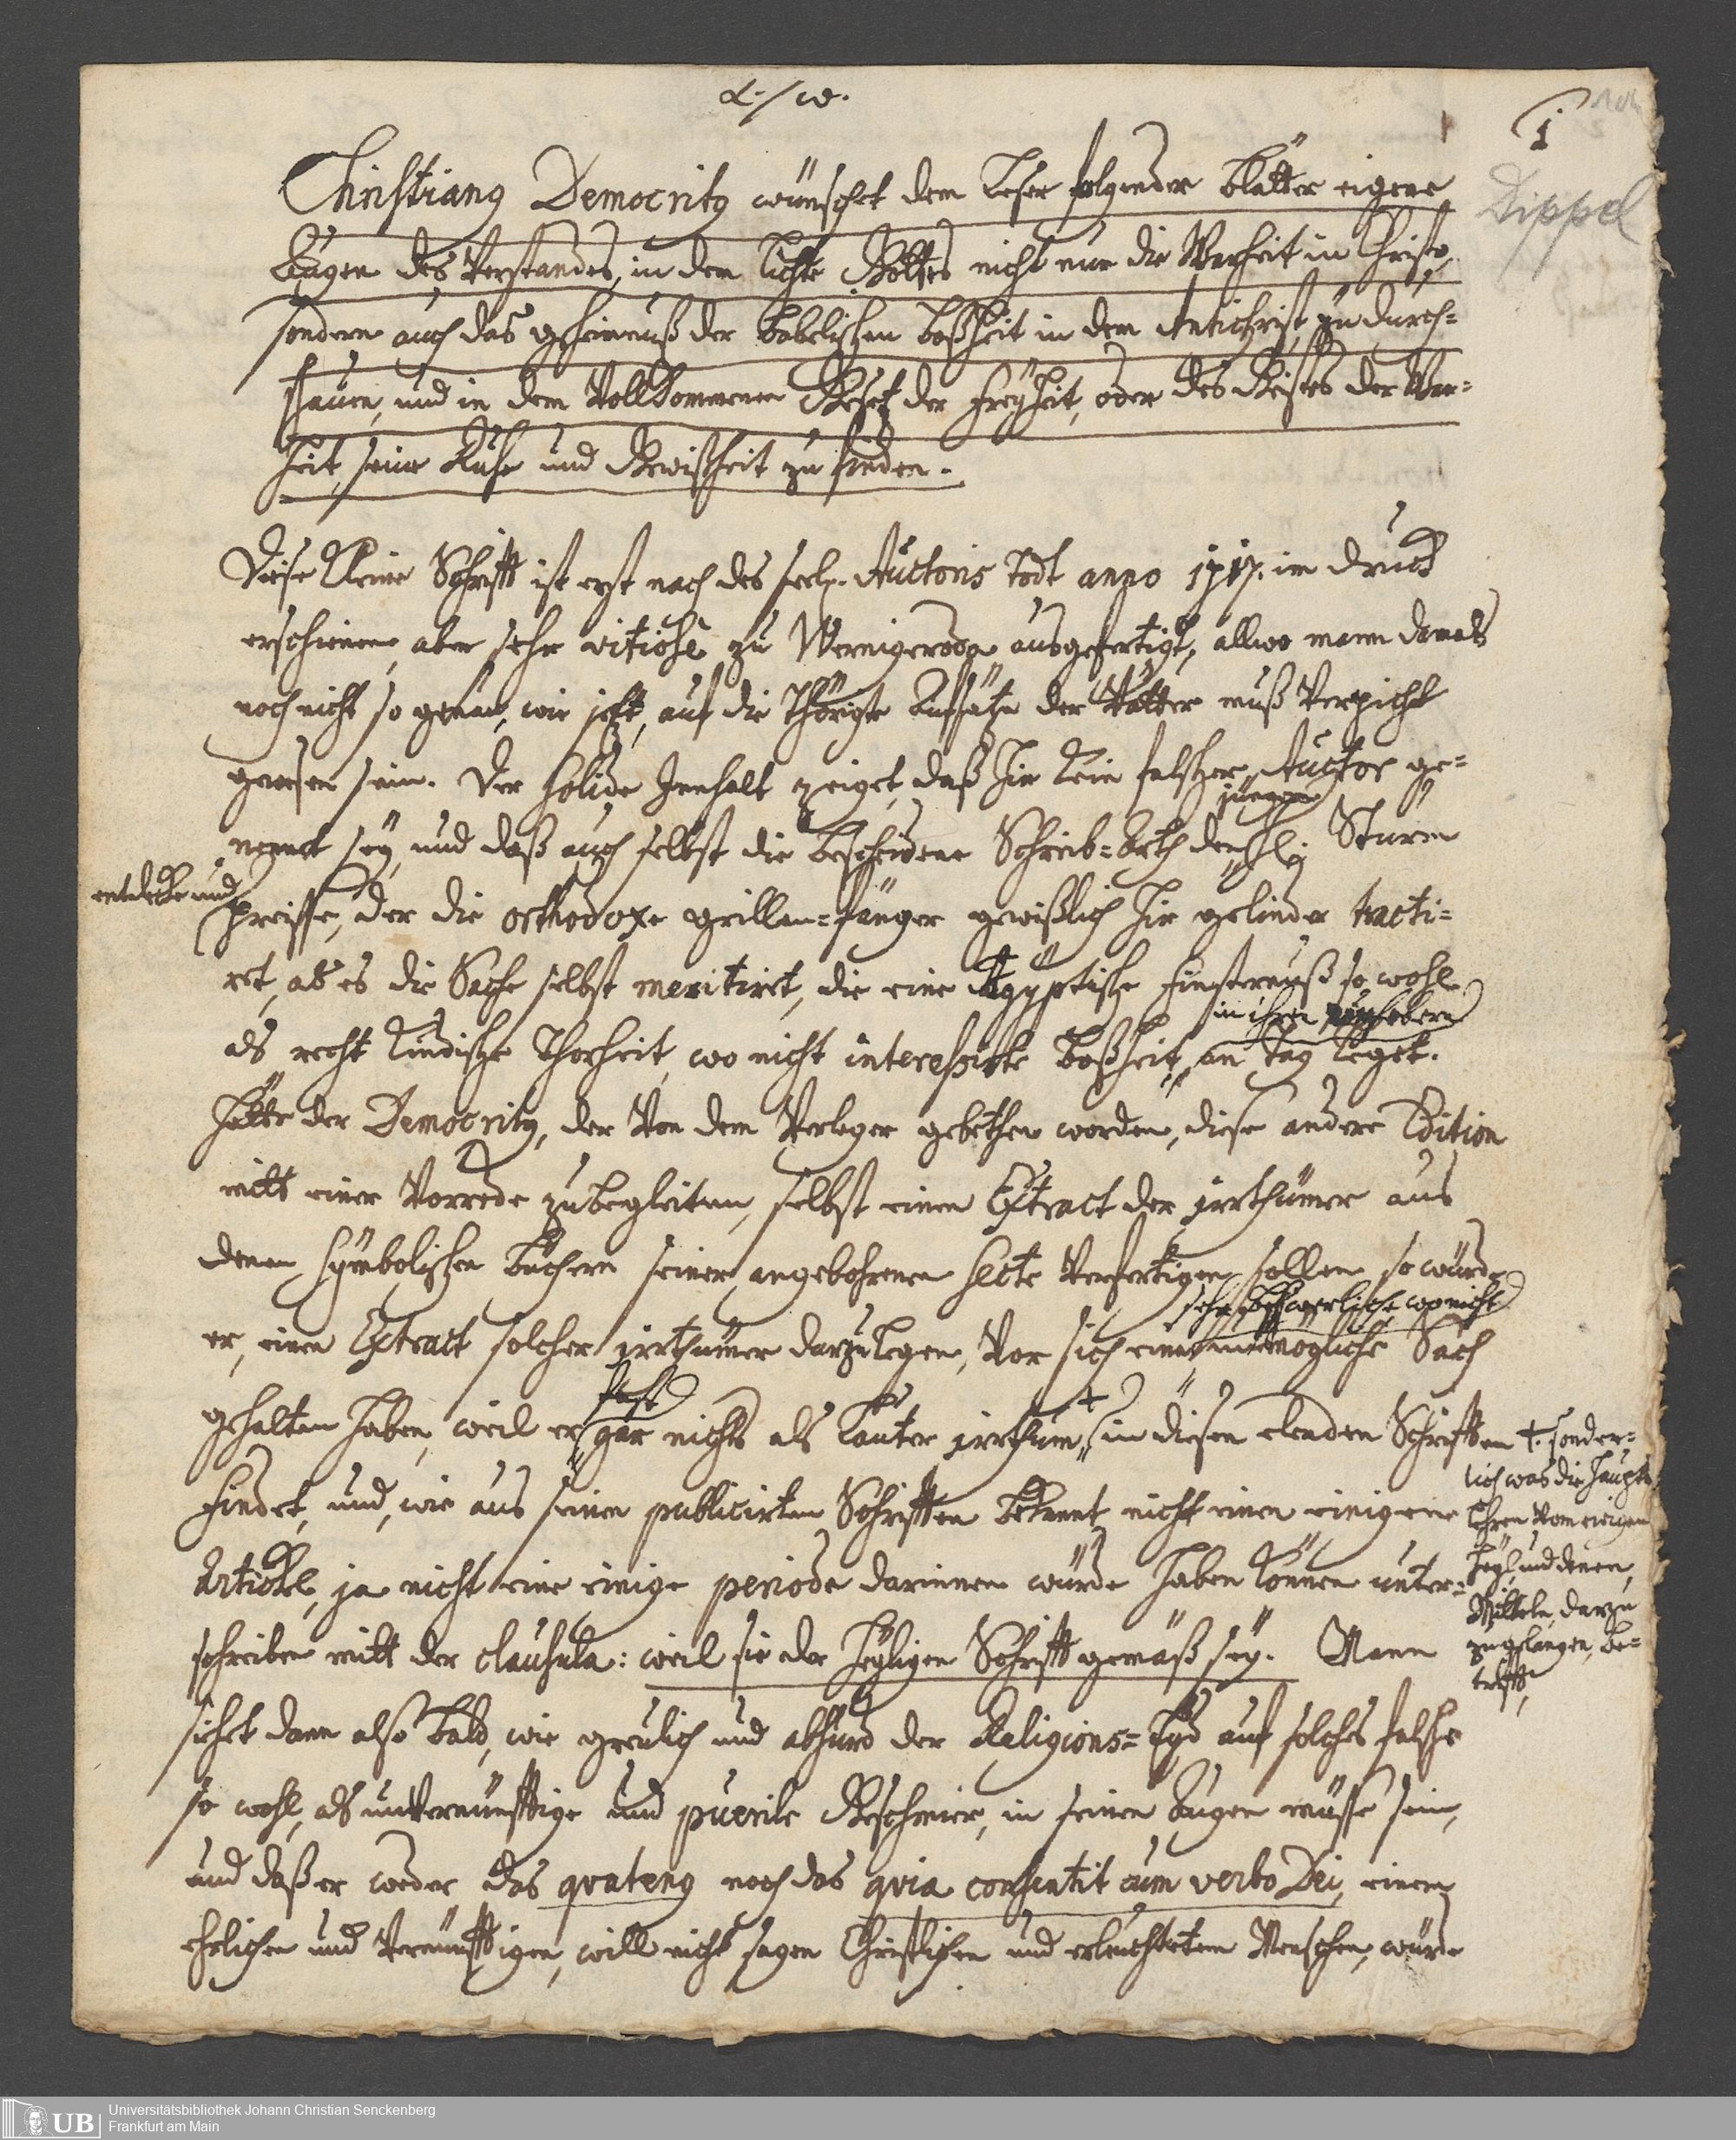 α./ω.
1
Dippel
Christianus Democritus wünschet dem Leser folgender Blätter eigene
Augen des Verstandes, in dem Lichte Gottes nicht nur die Warheit in Christo,
sondern auch das geheimnuß der babelischen Boßheit in dem Antichrist, zu durch=
schauen, und in dem Vollkommenen Gesetz der Freyheit, oder des Geistes der War=
heit, seine Ruhe und Gewißheit zu finden.
Diese kleine Schrifft ist erst nach des seel. Auctoris Todt anno 1717. im druck
erschienen, aber sehr vitiosè zu Wernigeroda ausgefertigt, allwo mann damals
noch nicht so genau, wie jetzt, auf die Thörigte Aufsätze der Vätter muß verpicht
gewesen sein. Der solide Innhalt zeiget, daß hie kein falscher Auctor ge=
jüngern
nennet sey, und daß auch selbst die bescheidene Schreib=Arth den Hl. Sturm
entdecke und
preisse, der die orthodoxe grillen=fänger gewißlich hie gelinder tracti=
ret, als es die Sache selbst meritiret, die eine Ägyptische Finsternuß so wohl
in ihren
als recht kindische Thorheit, wo nicht interessirte Boßheit, an Tag leget.
Hätte der Democritus, der von dem Verleger gebethen worden, diese andere Edition
mitt einer Vorrede zu begleiten, selbst einen Extract der irrthümer aus
denen symbolischen Büchern seiner angebohrenen Secte verfertigen sollen, so würde
sehr beschwerliche, wo nicht
er, einen Extract solcher irrthümer darzulegen, vor sich eine unmögliche Sach
fast
gehalten haben, weil er gar nichts als lauter irrthum, + in diesen elenden Schrifften
+. sonder=
lich was die Haupt
lehren vom ewigen
Heyl, und denen
Mitteln, darzu
zu gelangen, be=
trifft,
findet, und, wie aus seinen publicirten Schrifften bekannt, nicht einen einigen
Artickel, ja nicht eine einige periode darinnen würde haben können unter=
schreiben mitt der clausula: weil sie der Heyligen Schrifft gemäß sey. Mann
siehet dann also bald, wie greulich und absurd der Religions=Eyd auf solches falsche
so wohl, als unvernünfftige und puerile Geschmier, in seinen Augen müsse sein,
und daß er weder das quatenus noch das quia consentit cum verbo Dei, einem
ehrlichen und vernünfftigen, will nicht sagen Christlichen und erleuchteten Menschen, würde
Universitätsbibliothek Johann Christian Senckenberg
Frankfurt am Main
UB